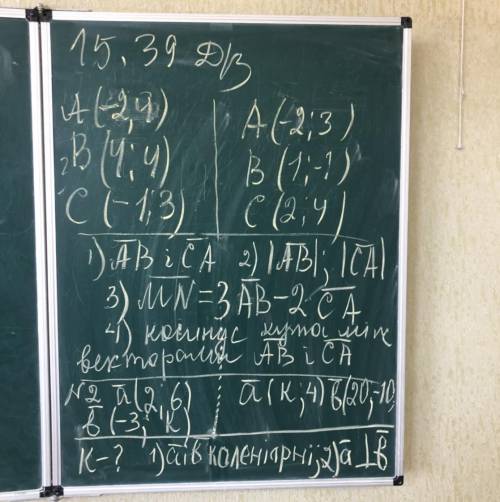 15.39 Д/з
A(-2;4) A(-2;3)
B(4;4) B(1;-1)
C(-1;3) C(2;4)
1) A̅B̅ і C̅A̅ 2) |A̅B̅|; |C̅A̅|
3) M̅N̅ = 3 A̅B̅ - 2 C̅A̅
4) косинус кута між
векторами A̅B̅ і C̅A̅
№2 a̅(2;6) a̅(к;4) b̅(20;-10)
b̅(-3; к)
К-? 1) a̅ і b̅ коленіарні; 2) a̅ ⊥ b̅